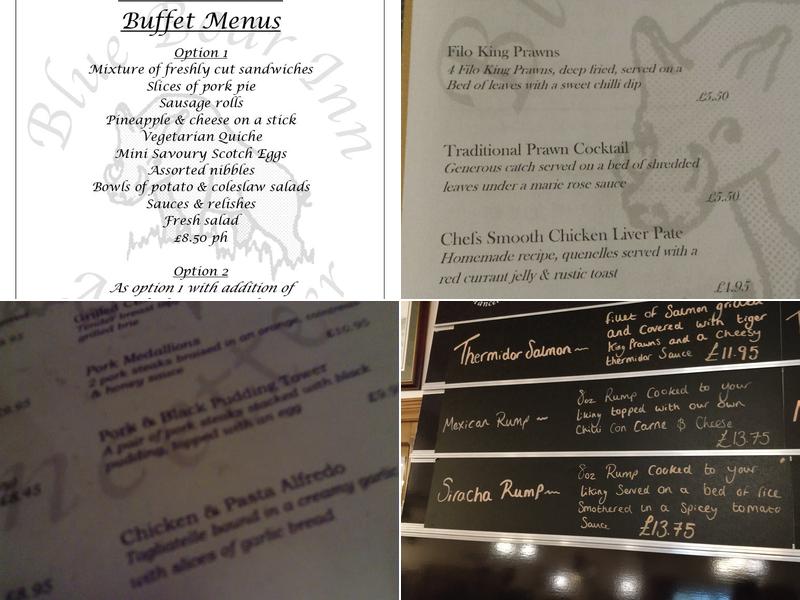 Buffet Menus
Option 1
Mixture of freshly cut sandwiches
Slices of pork pie
Sausage rolls
Pineapple & cheese on a stick
Vegetarian Quiche
Mini Savoury Scotch Eggs
Assorted nibbles
Bowls of potato & coleslaw salads
Sauces & relishes
Fresh salad
£8.50 ph
Option 2
As option 1 with addition of
Blue Boar Inn
Filo King Prawns
4 Filo King Prawns, deep fried, served on a
Bed of leaves with a sweet chilli dip
£5.50
Traditional Prawn Cocktail
Generous catch served on a bed of shredded
leaves under a marie rose sauce
£5.50
Chefs Smooth Chicken Liver Pate
Homemade recipe, quenelles served with a
red currant jelly & rustic toast
£4.95
Grilled
Tender breast
grilled brie
£10.95
Pork Medallions
2 pork steaks braised in an orange,
& honey sauce
Pork & Black Pudding Tower
A pair of pork steaks stacked with black
pudding, topped with an egg
Chicken & Pasta Alfredo
Tagliatelle bound in a creamy garlic
with slices of garlic bread
£8.95
Thermidor Salmon ~
fillet of Salmon grilled
and Covered with tiger
King Prawns and a Cheesy
thermidor Sauce £11.95
Mexican Rump ~
8oz Rump Cooked to your
liking topped with our own
Chilli Con Carne & Cheese
£13.75
Siracha Rump ~
8oz Rump Cooked to your
liking Served on a bed of rice
Smothered in a Spicey tomato
Sauce £13.75